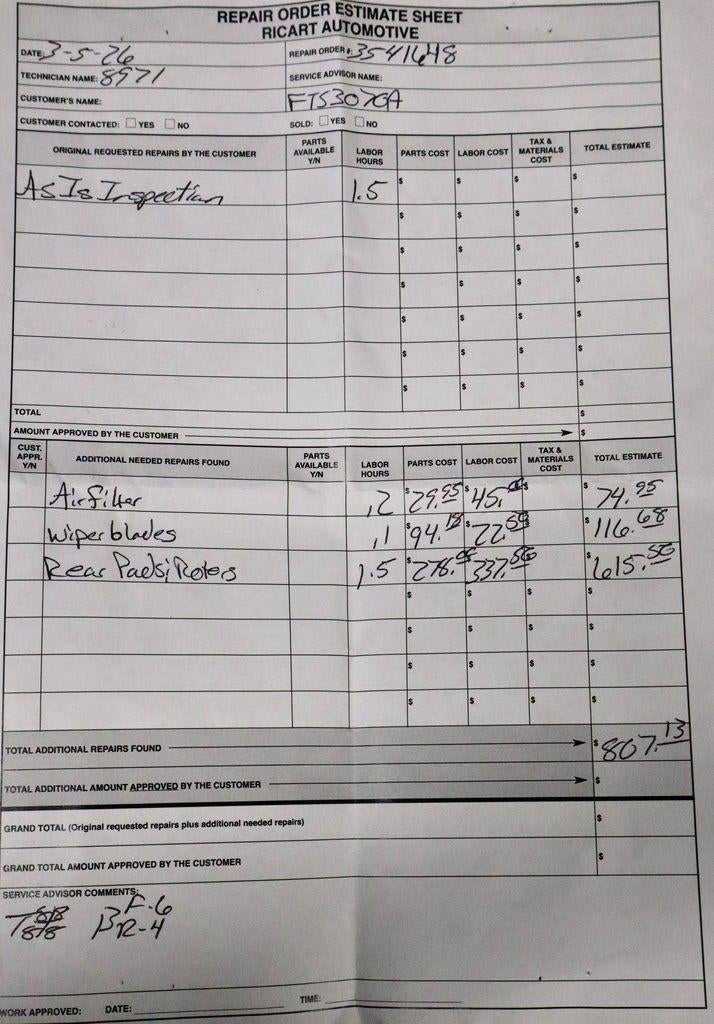 REPAIR ORDER ESTIMATE SHEET
RICART AUTOMOTIVE
DATE: 3-5-26 REPAIR ORDER #: 3541648
TECHNICIAN NAME: 8971 SERVICE ADVISOR NAME:
CUSTOMER'S NAME: FTS3070A
CUSTOMER CONTACTED: YES NO SOLD: YES NO
ORIGINAL REQUESTED REPAIRS BY THE CUSTOMER PARTS AVAILABLE Y/N LABOR HOURS PARTS COST LABOR COST TAX & MATERIALS COST TOTAL ESTIMATE
As Is Inspection 1.5 $ $ $ $
$ $ $ $
$ $ $ $
$ $ $ $
$ $ $ $
$ $ $ $
$ $ $ $
TOTAL $
AMOUNT APPROVED BY THE CUSTOMER $
CUST. APPR. Y/N ADDITIONAL NEEDED REPAIRS FOUND PARTS AVAILABLE Y/N LABOR HOURS PARTS COST LABOR COST TAX & MATERIALS COST TOTAL ESTIMATE
Airfilter .2 $29.95 $45. $ $74.95
Wiperblades .1 $94.18 $22.50 $ $116.68
Rear Pads; Roters 1.5 $278. $337.50 $ $615.50
$ $ $ $
$ $ $ $
$ $ $ $
$ $ $ $
TOTAL ADDITIONAL REPAIRS FOUND $807.13
TOTAL ADDITIONAL AMOUNT APPROVED BY THE CUSTOMER $
GRAND TOTAL (Original requested repairs plus additional needed repairs) $
GRAND TOTAL AMOUNT APPROVED BY THE CUSTOMER $
SERVICE ADVISOR COMMENTS:
T 8/8 8/8 B F-6 R-4
WORK APPROVED: DATE: TIME: